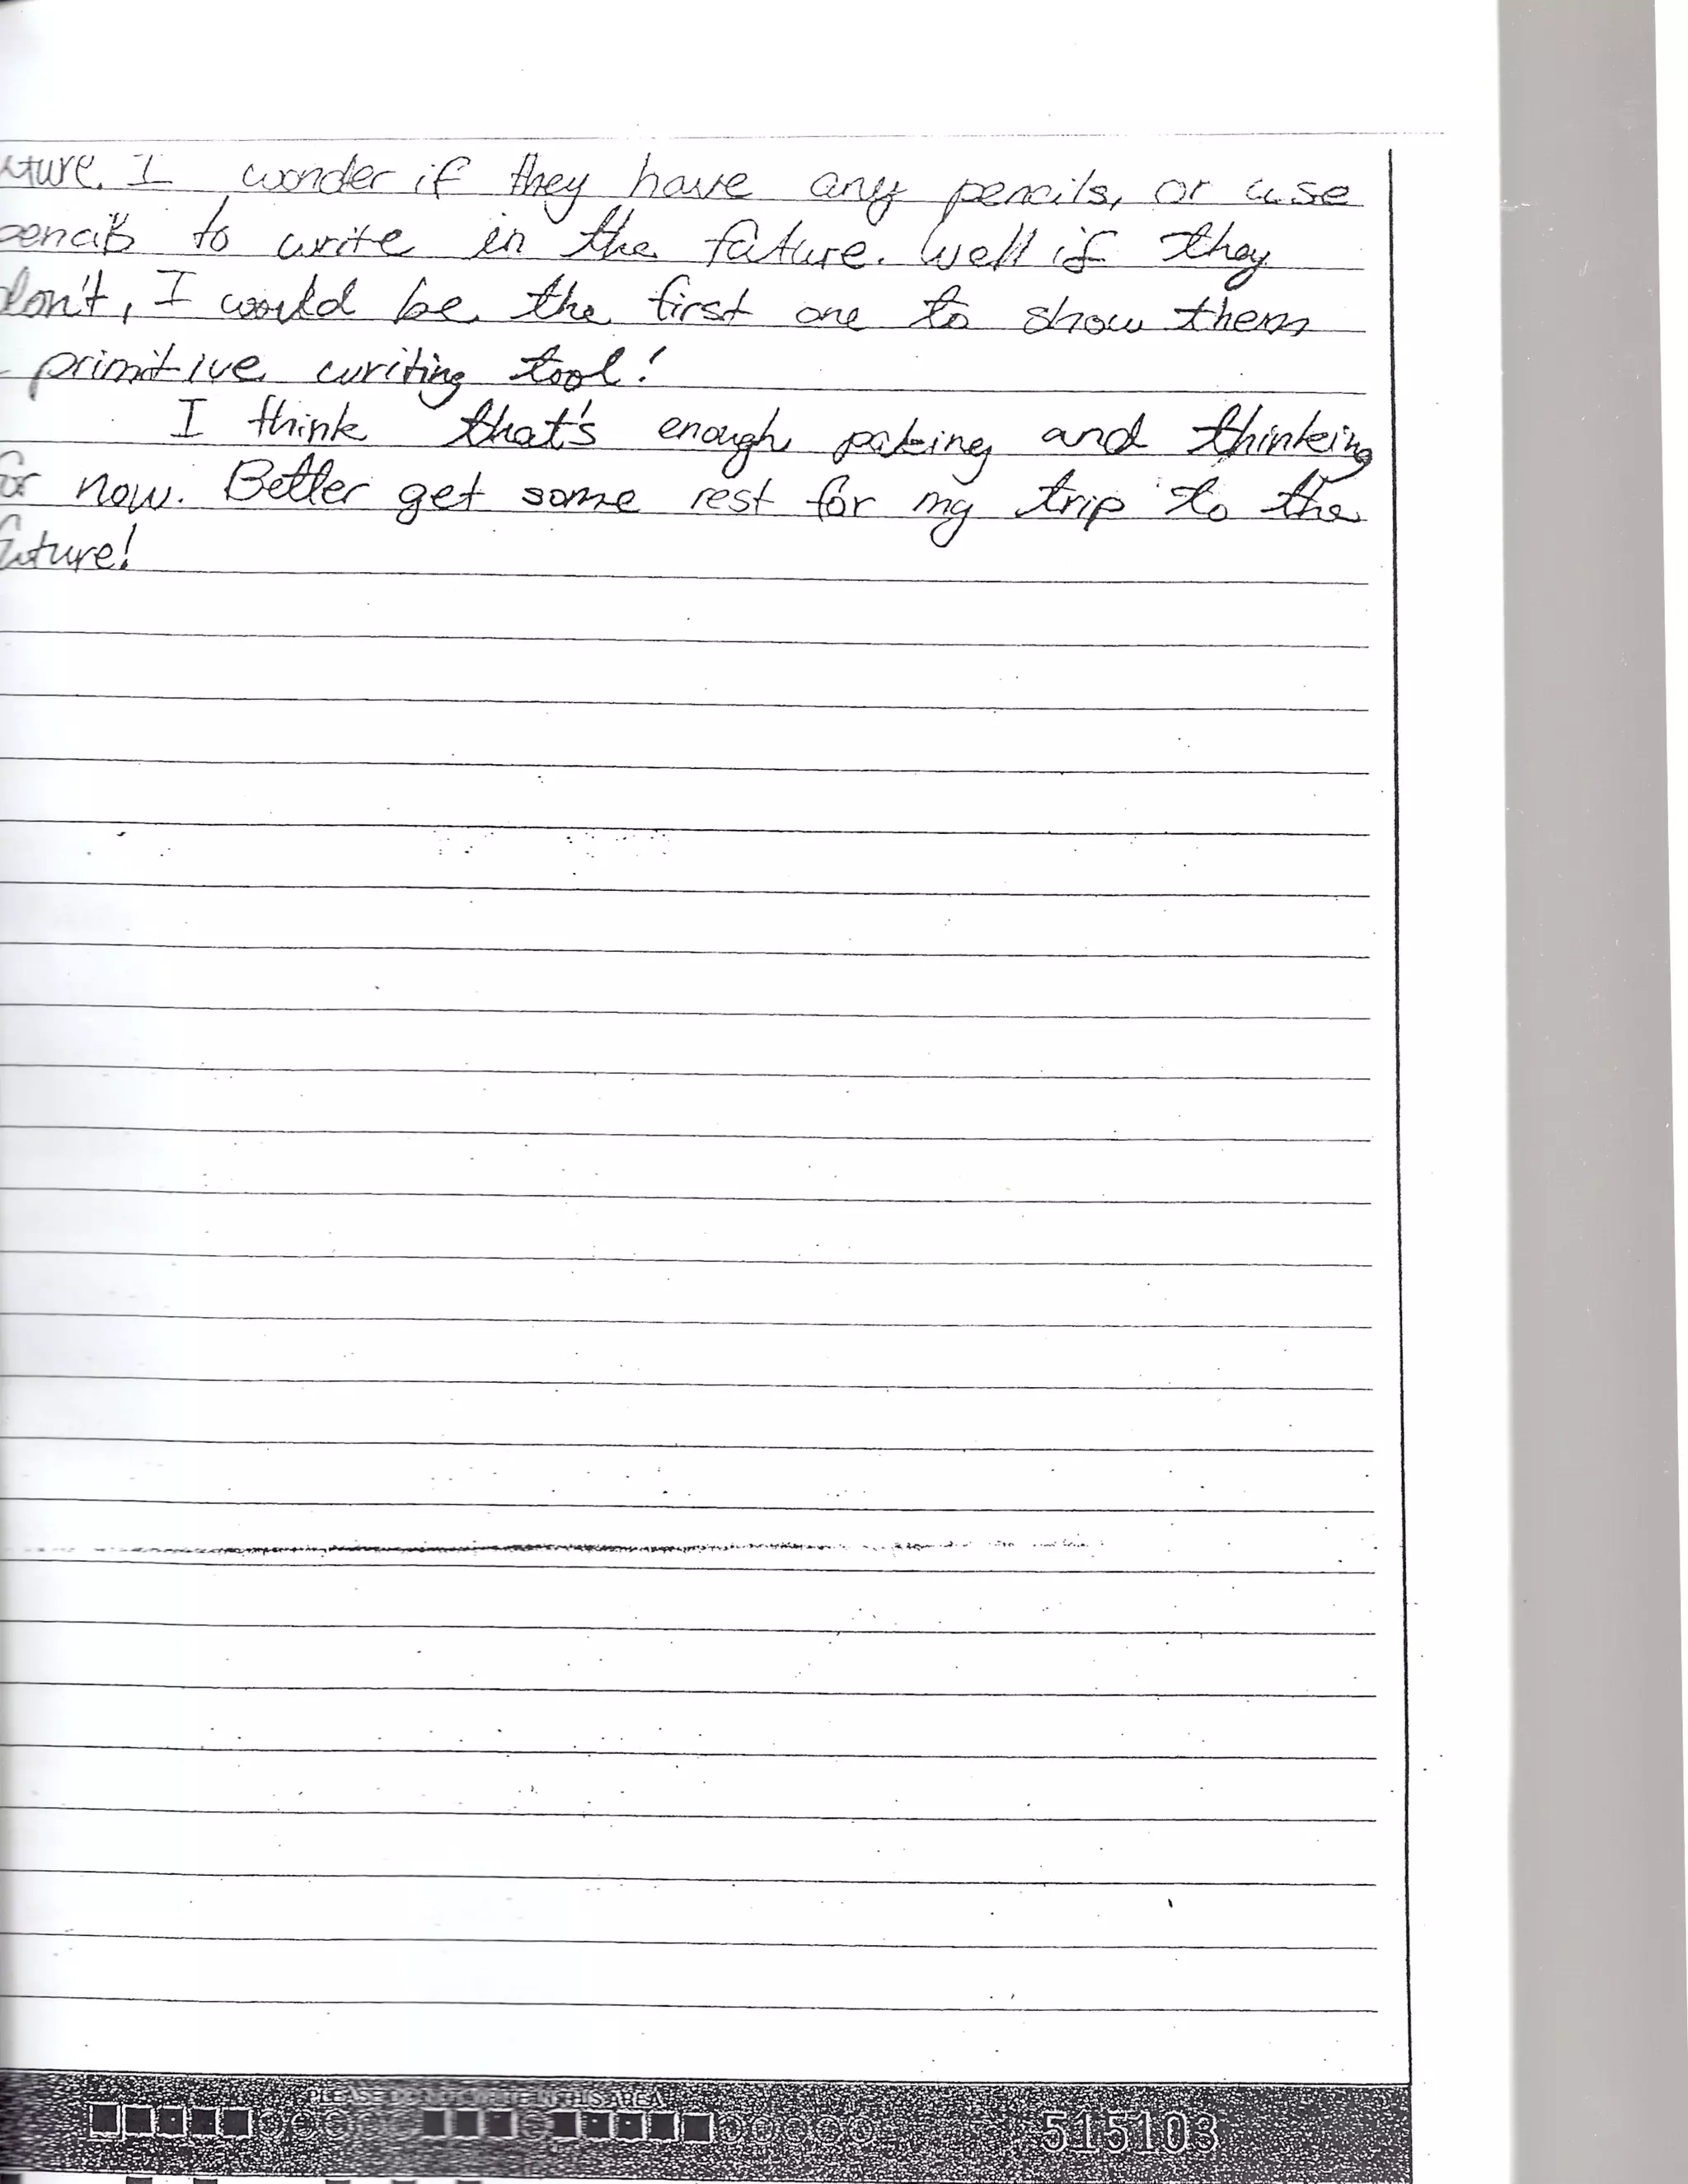 uture. I wonder if they have any pencils, or use
pencils to write in the future. Well if they
don't, I would be the first one to show them
primitive writing tool!
I think that's enough paking and thinking
for now. Better get some rest for my trip to the
future!
PLEASE DO NOT WRITE IN THIS AREA
515103